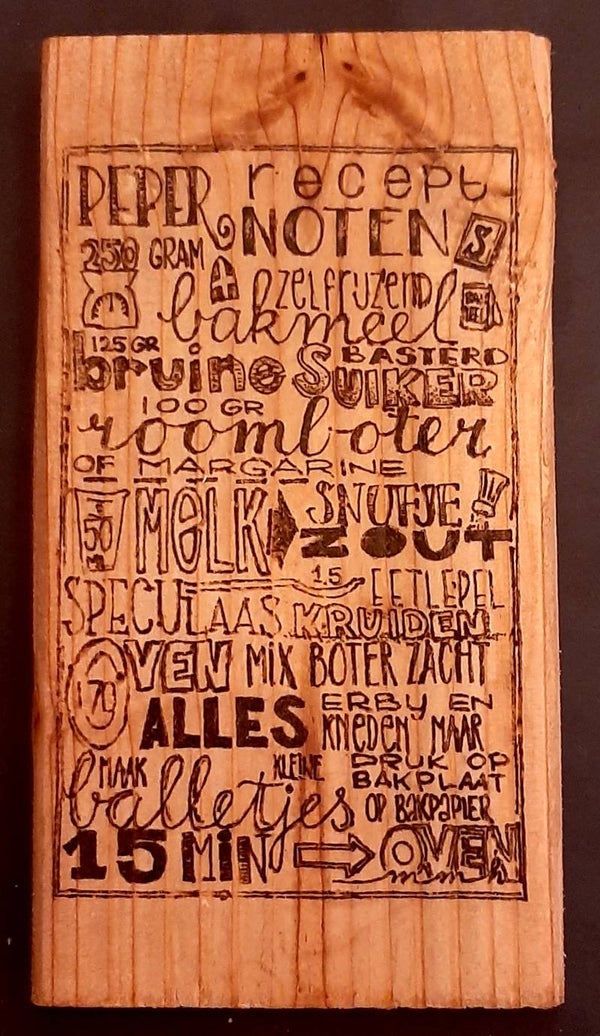 recept
PEPER NOTEN S
250 GRAM
zelfrijzend
bakmeel
125 GR BASTERD
bruine SUIKER
100 GR
roomboter
OF MARGARINE
50 MELK SNUFJE
ZOUT
1.5 EETLEPEL
SPECULAAS KRUIDEN
OVEN MIX BOTER ZACHT
170 ALLES ERBIJ EN
KNEDEN MAAR
MAAK KLEINE DRUK OP
balletjes BAKPLAAT
OP BAKPAPIER
15 MIN OVEN
mmm